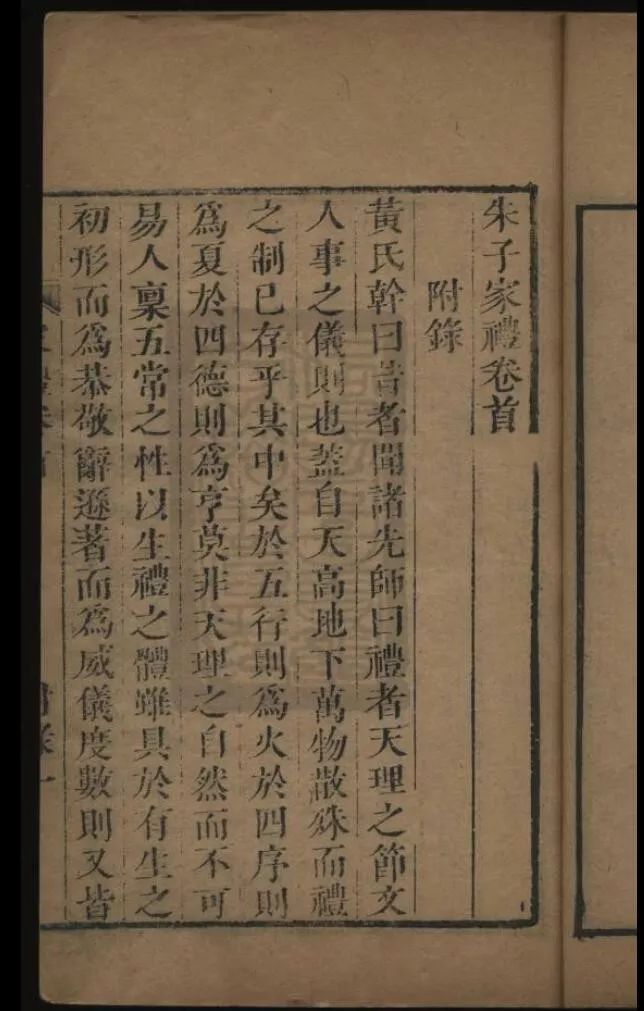 朱子家禮卷首
附錄
黃氏幹曰昔者聞諸先師曰禮者天理之節文
人事之儀則也蓋自天高地下萬物散殊而禮
之制已存乎其中矣於五行則爲火於四序則
爲夏於四德則爲亨莫非天理之自然而不可
易人稟五常之性以生禮之體雖具於有生之
初形而爲恭敬辭遜著而爲威儀度數則又皆